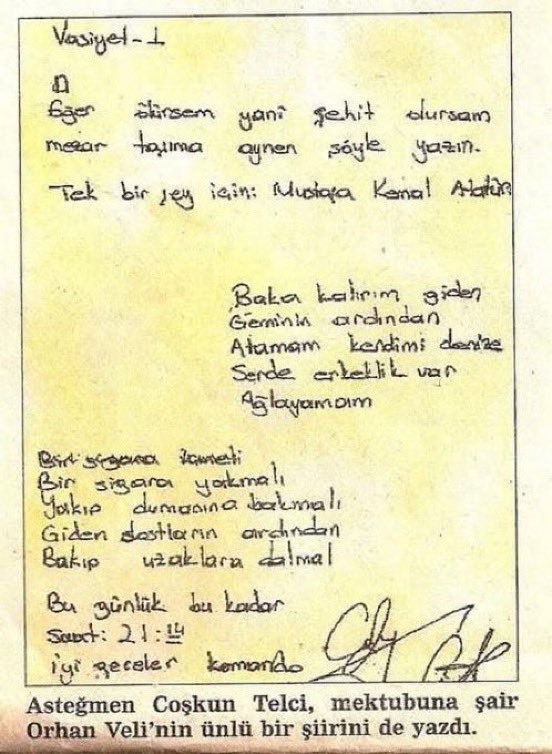 Vasiyet-1
Eğer ölürsem yani şehit olursam
mezar taşıma aynen şöyle yazın.
Tek bir şey için: Mustafa Kemal Atatür
Baka kalırım giden
Geminin ardından
Atamam kendimi denize
Serde erkeklik var
Ağlayamam
Bir sigara
Bir sigara yakmalı
Yakıp dumanına bakmalı
Giden dostların ardından
Bakıp uzaklara dalmal
Bu günlük bu kadar
Saat: 21:14
iyi geceler komando
Asteğmen Coşkun Telci, mektubuna şair
Orhan Veli'nin ünlü bir şiirini de yazdı.